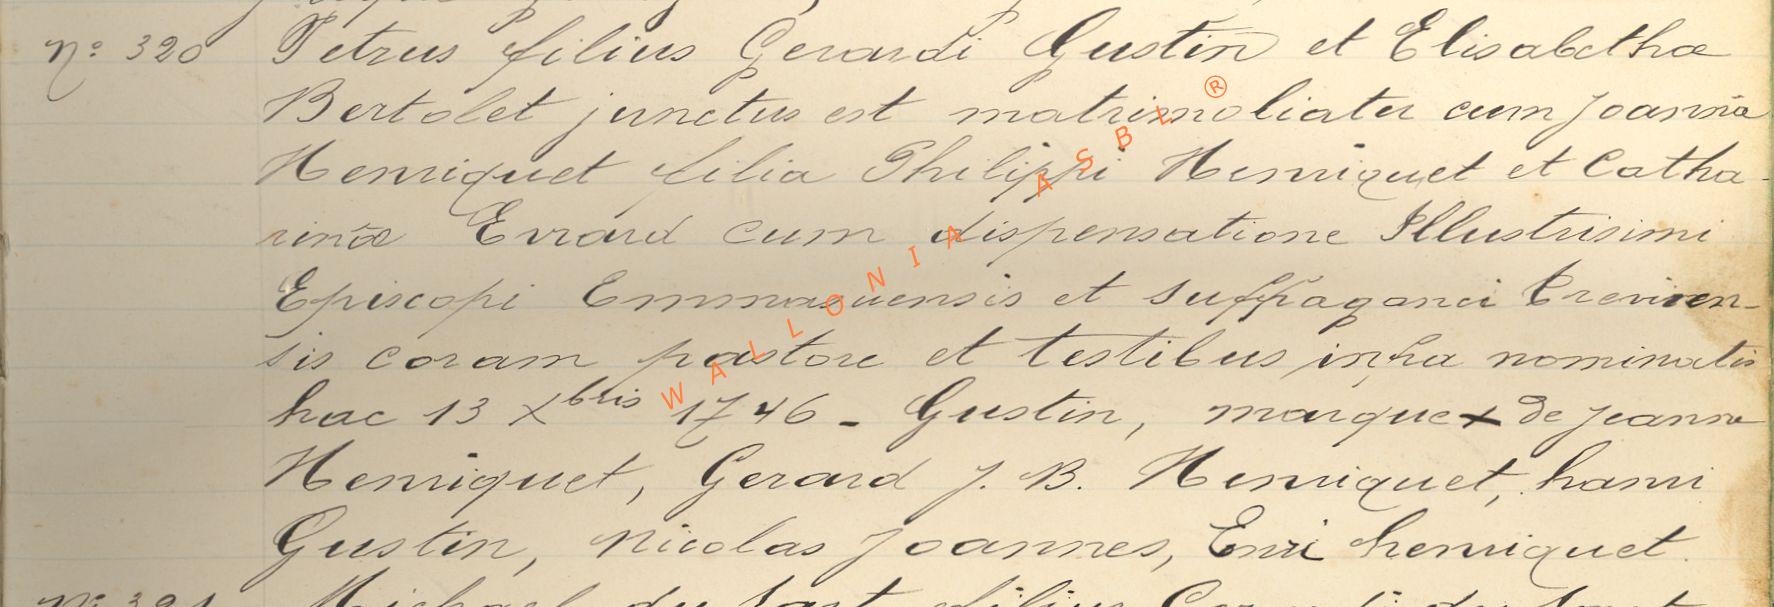 N° 320 Petrus filius Gerardi Gustin et Elisabethæ
Bertolet junctus est matrimolialiter cum Joanna
Henriquet filia Philippi Henriquet et Catha-
rinæ Evrard cum dispensatione Illustrisimi
Episcopi Emmauensis et suffraganei Treviren-
sis coram pastore et testibus infra nominatis
hac 13 Xbris 1746 - Gustin, marque x de Jeanne
Henriquet, Gerard J. B. Henriquet, hanri
Gustin, Nicolas Joannes, Enri henriquet.
N° 321 Michael du Sart filius
WALLONIA ASBL ®